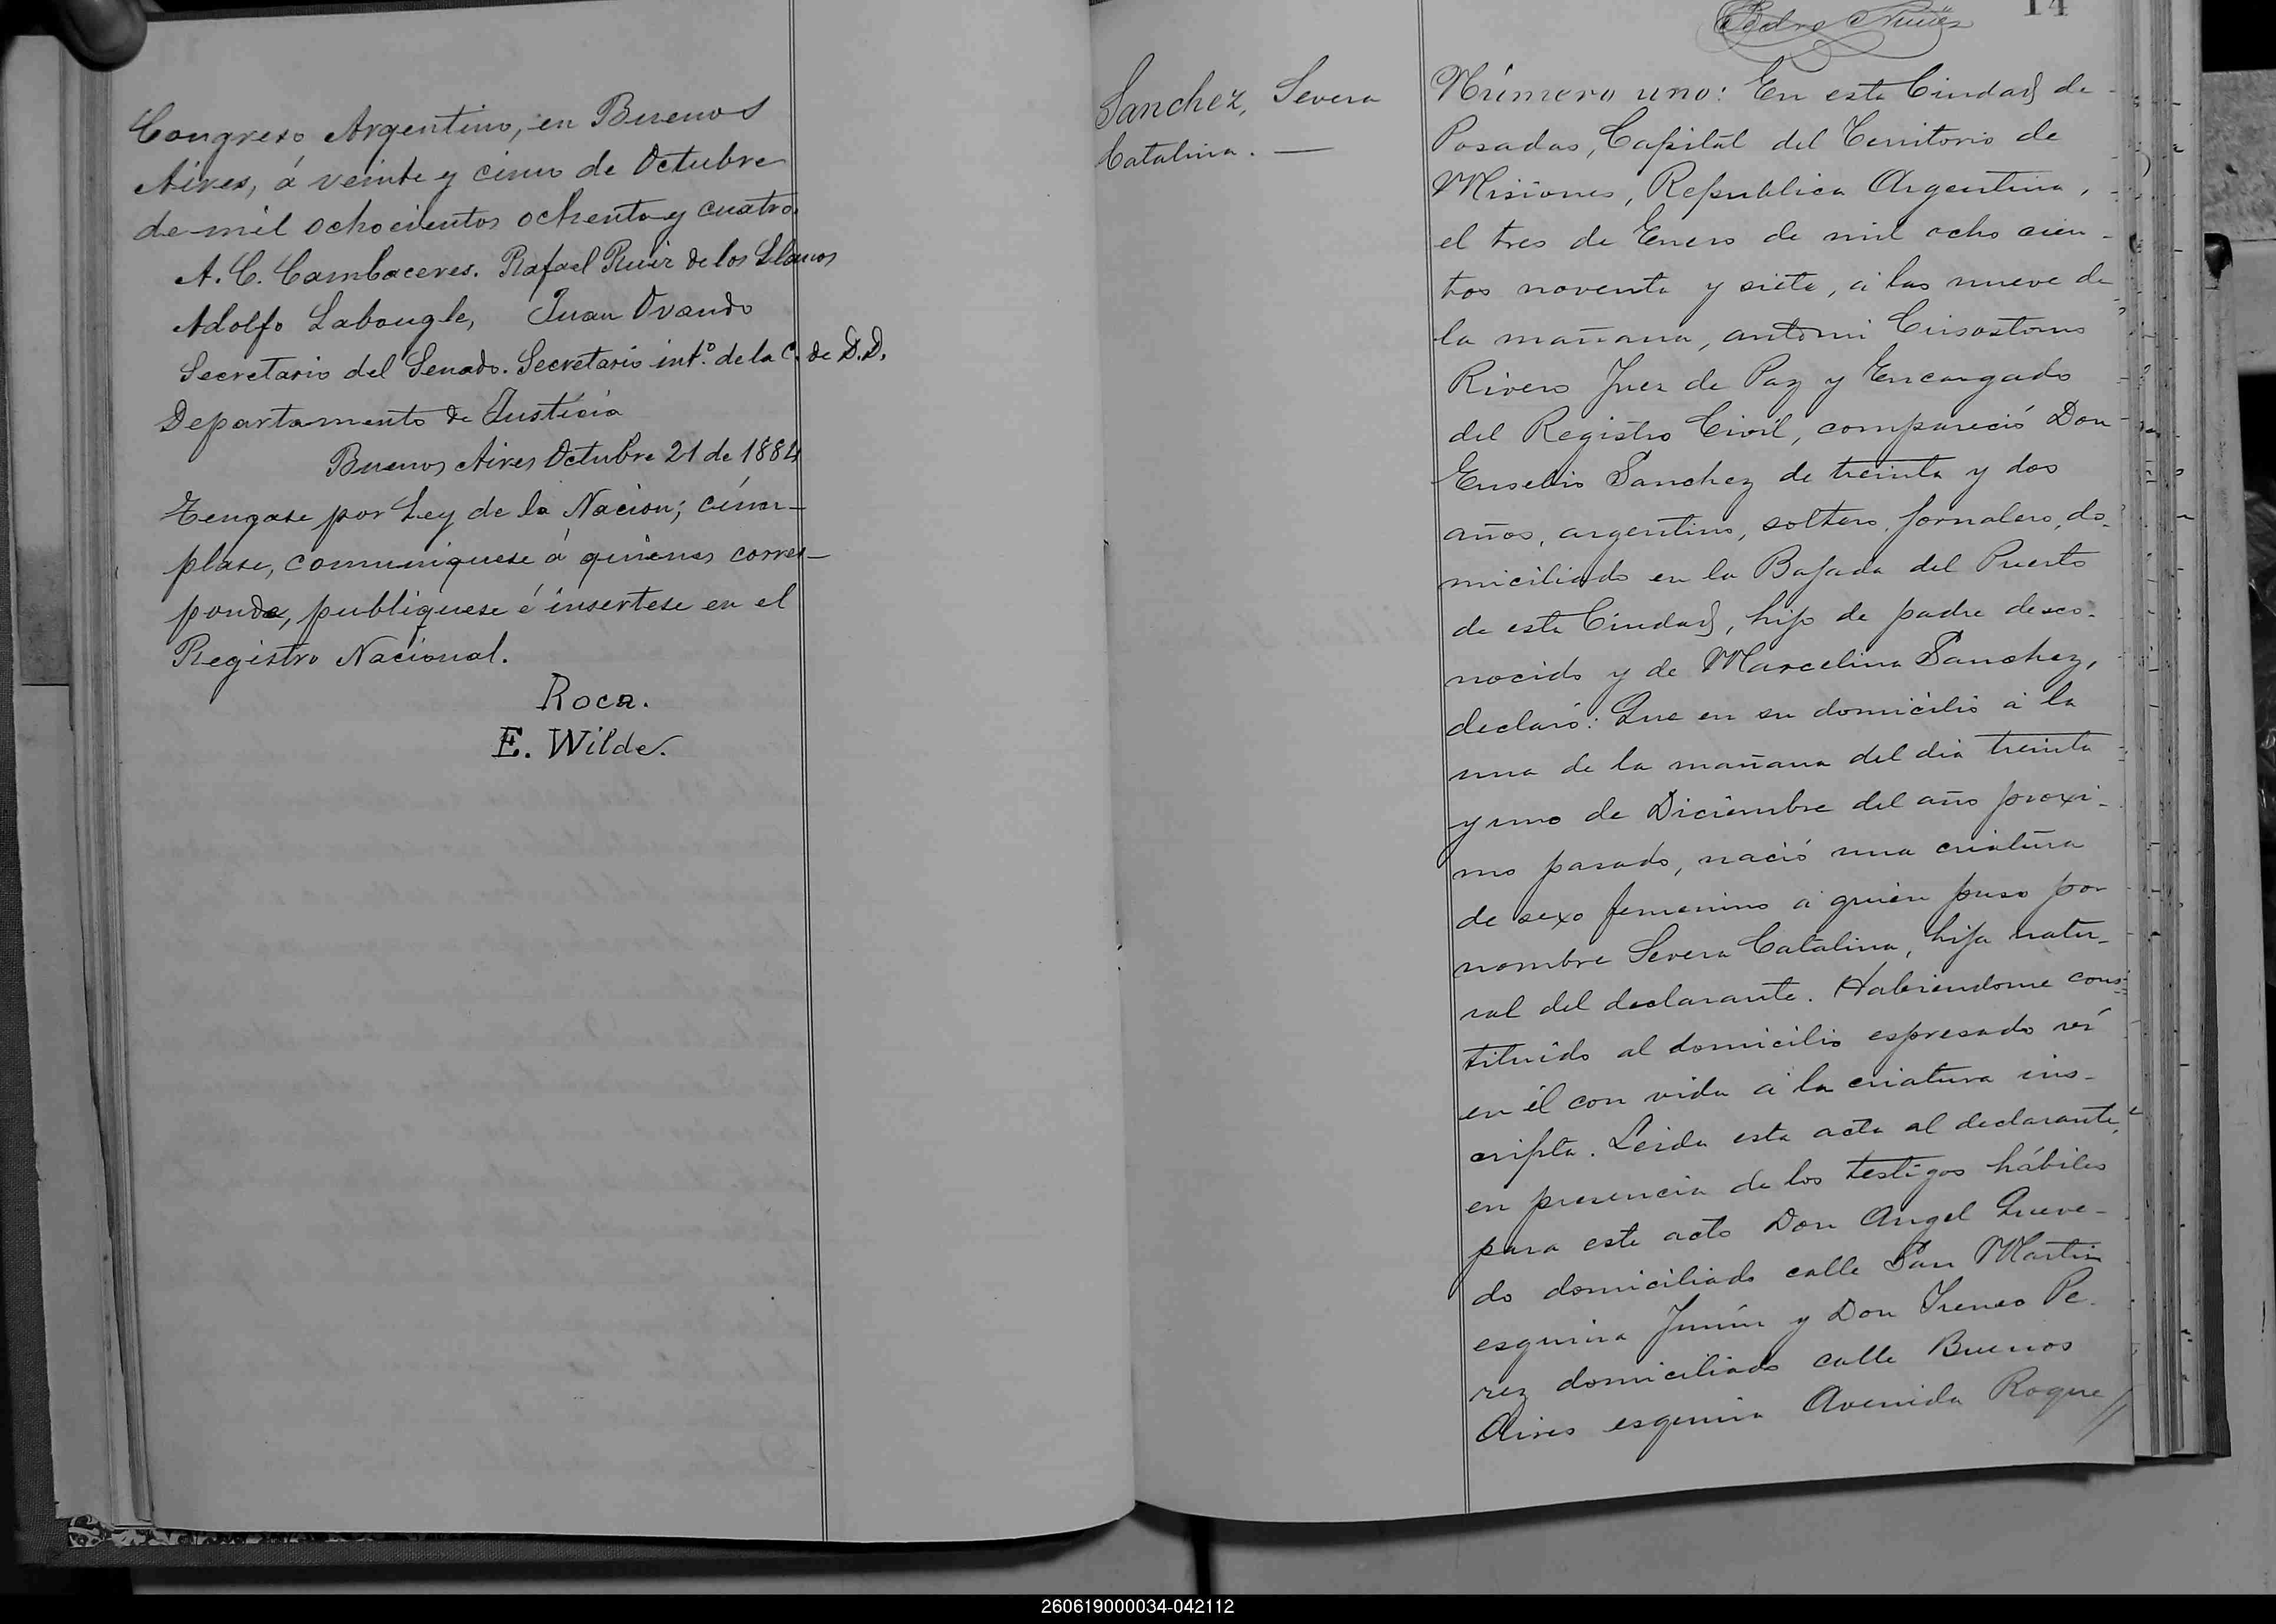 Congreso Argentino, en Buenos
Aires, á veinte y cinco de Octubre
de mil ochocientos ochenta y cuatro.
A. C. Cambaceres. Rafael Ruiz de los Llanos
Adolfo Labougle, Juan Ovando
Secretario del Senado. Secretario int.º de la C. de D.D.
Departamento de Justicia
Buenos Aires Octubre 21 de 1884
Tengase por Ley de la Nacion; cúm-
plase, comuniquese á quienes corres-
ponda, publiquese é insertese en el
Registro Nacional.
Roca.
E. Wilde.
Pedro Nuñez
14
Sanchez, Severa
Catalina. —
Número uno: En esta Ciudad de
Posadas, Capital del Territorio de
Misiones, Republica Argentina,
el tres de Enero de mil ocho cien-
tos noventa y siete, á las nueve de
la mañana, ante mi Crisostomo
Rivero Juez de Paz y Encargado
del Registro Civil, compareció Don
Eusebio Sanchez de treinta y dos
años, argentino, soltero, jornalero, do-
miciliado en la Bajada del Puerto
de esta Ciudad, hijo de padre desco-
nocido y de Marcelina Sanchez,
declaró: Que en su domicilio á la
una de la mañana del dia treinta
y uno de Diciembre del año proxi-
mo pasado, nació una criatura
de sexo femenino á quien puso por
nombre Severa Catalina, hija natu-
ral del declarante. Habiendome cons-
tituido al domicilio espresado ví
en él con vida á la criatura ins-
cripta. Leida esta acta al declarante,
en presencia de los testigos hábiles
para este acto Don Angel Queve-
do domiciliado calle San Martin
esquina Junín y Don Ireneo Pe-
rez domiciliado calle Buenos
Aires esquina Avenida Roque //
260619000034-042112